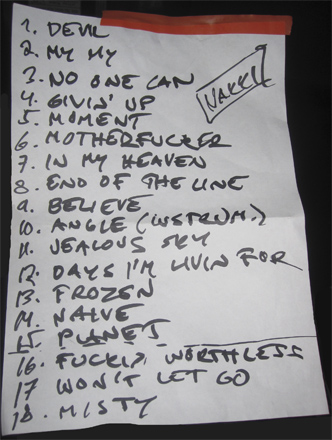 1. DEVIL
2. MY MY
3. NO ONE CAN
NAKKI
4. GIVIN' UP
5. MOMENT
6. MOTHERFUCKER
7. IN MY HEAVEN
8. END OF THE LINE
9. BELIEVE
10. ANGLE (INSTRUM.)
11. JEALOUS SKY
12. DAYS I'M LIVIN FOR
13. FROZEN
14. NAIVE
15. PLANET
16. FUCKIN WORTHLESS
17 WON'T LET GO
18. MISTY